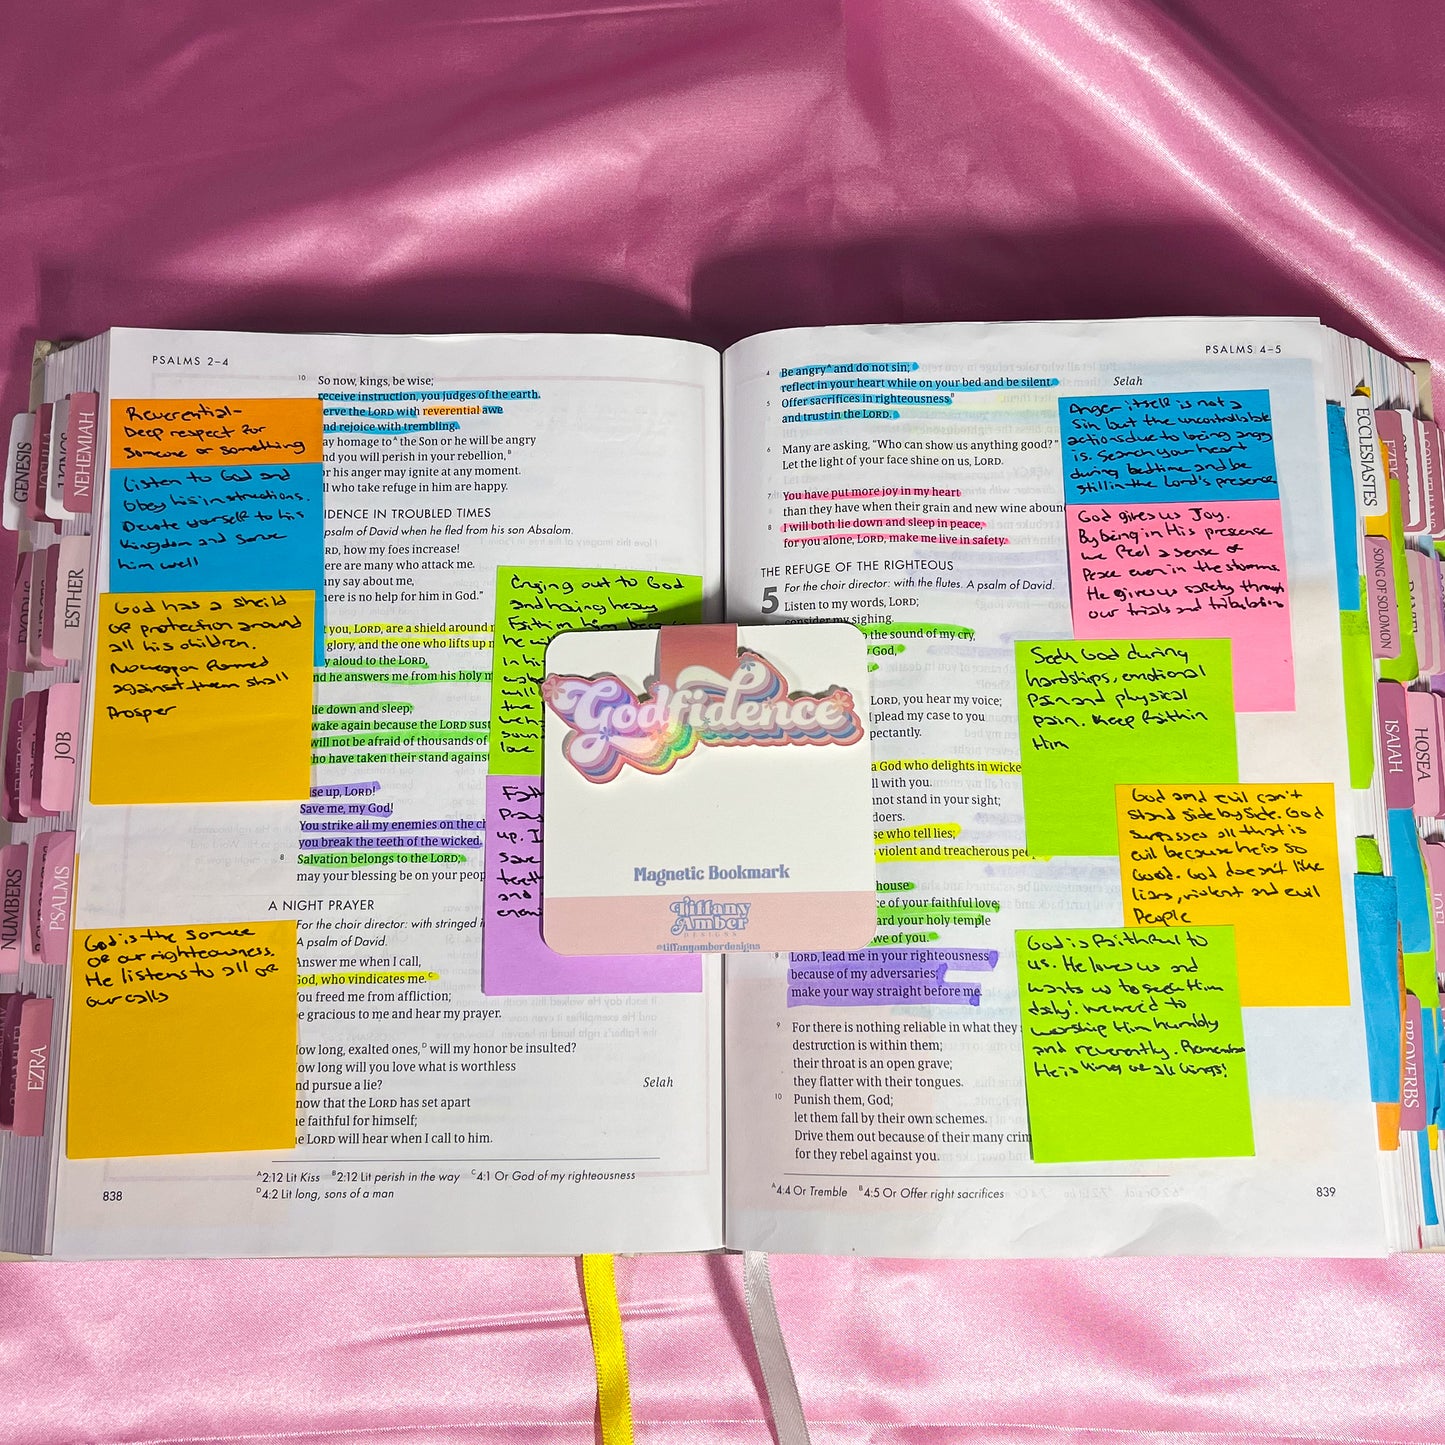 PSALMS 2–4
10 So now, kings, be wise;
receive instruction, you judges of the earth.
erve the LORD with reverential awe
nd rejoice with trembling.
ay homage to^A the Son or he will be angry
and you will perish in your rebellion,^B
or his anger may ignite at any moment.
ll who take refuge in him are happy.
IDENCE IN TROUBLED TIMES
psalm of David when he fled from his son Absalom.
RD, how my foes increase!
ere are many who attack me.
any say about me,
here is no help for him in God."
t you, LORD, are a shield around
glory, and the one who lifts up
y aloud to the LORD,
nd he answers me from his holy
lie down and sleep;
wake again because the LORD sust
will not be afraid of thousands of
who have taken their stand against
ise up, LORD!
Save me, my God!
You strike all my enemies on the ch
you break the teeth of the wicked.
8 Salvation belongs to the LORD;
may your blessing be on your peop
A NIGHT PRAYER
For the choir director: with stringed i
A psalm of David.
Answer me when I call,
God, who vindicates me.^C
You freed me from affliction;
be gracious to me and hear my prayer.
How long, exalted ones,^D will my honor be insulted?
How long will you love what is worthless
nd pursue a lie? Selah
now that the LORD has set apart
he faithful for himself;
he LORD will hear when I call to him.
^A2:12 Lit Kiss ^B2:12 Lit perish in the way ^C4:1 Or God of my righteousness
^D4:2 Lit long, sons of a man
838
Reverential-
Deep respect for
someone or something
Listen to God and
Obey his instructions.
Devote yourself to his
Kingdom and serve
him well
God has a sheild
of protection around
all his children.
No weapon formed
against them shall
Prosper
God is the source
of our righteousness.
He listens to all of
our calls
Crying out to God
and having heavy
Faith in him
he wi
In his
will
the
love
Pray
up. I
save
teeth
and
Godfidence
Magnetic Bookmark
Tiffany
Amber
DESIGNS
@tiffanyamberdesigns
PSALMS 4–5
4 Be angry^A and do not sin;
reflect in your heart while on your bed and be silent. Selah
5 Offer sacrifices in righteousness^B
and trust in the LORD.
6 Many are asking, "Who can show us anything good?"
Let the light of your face shine on us, LORD.
7 You have put more joy in my heart
than they have when their grain and new wine aboun
8 I will both lie down and sleep in peace,
for you alone, LORD, make me live in safety.
THE REFUGE OF THE RIGHTEOUS
For the choir director: with the flutes. A psalm of David.
5 Listen to my words, LORD;
consider my sighing.
o the sound of my cry,
God,
LORD, you hear my voice;
I plead my case to you
pectantly.
a God who delights in wicke
ll with you.
not stand in your sight;
doers.
se who tell lies;
violent and treacherous peo
house
ce of your faithful love;
ard your holy temple
we of you.
8 LORD, lead me in your righteousness
because of my adversaries;
make your way straight before me.
9 For there is nothing reliable in what they s
destruction is within them;
their throat is an open grave;
they flatter with their tongues.
10 Punish them, God;
let them fall by their own schemes.
Drive them out because of their many crim
for they rebel against you.
^A4:4 Or Tremble ^B4:5 Or Offer right sacrifices
839
Anger itself is not a
Sin but the uncontrollable
actions due to being angry
is. Search your heart
during bedtime and be
still in the Lord's presence
God gives us Joy.
By being in His presence
we feel a sense of
Peace even in the storms.
He gives us safety through
our trials and tribulations
Seek God during
hardships, emotional
Pain and physical
pain. Keep faith in
Him
God and evil can't
stand side by side. God
surpasses all that is
evil because he is so
Good. God doesn't like
liars, violent and evil
People
God is faithful to
us. He loves us and
wants us to seek Him
daily! We need to
worship Him humbly
and reverently. Remember
He is king of all kings!
GENESIS
JOSHUA
KINGS
NEHEMIAH
EXODUS
JUDGES
ESTHER
JOB
NUMBERS
PSALMS
EZRA
ECCLESIASTES
SONG OF SOLOMON
DANIEL
ISAIAH
HOSEA
JOEL
PROVERBS